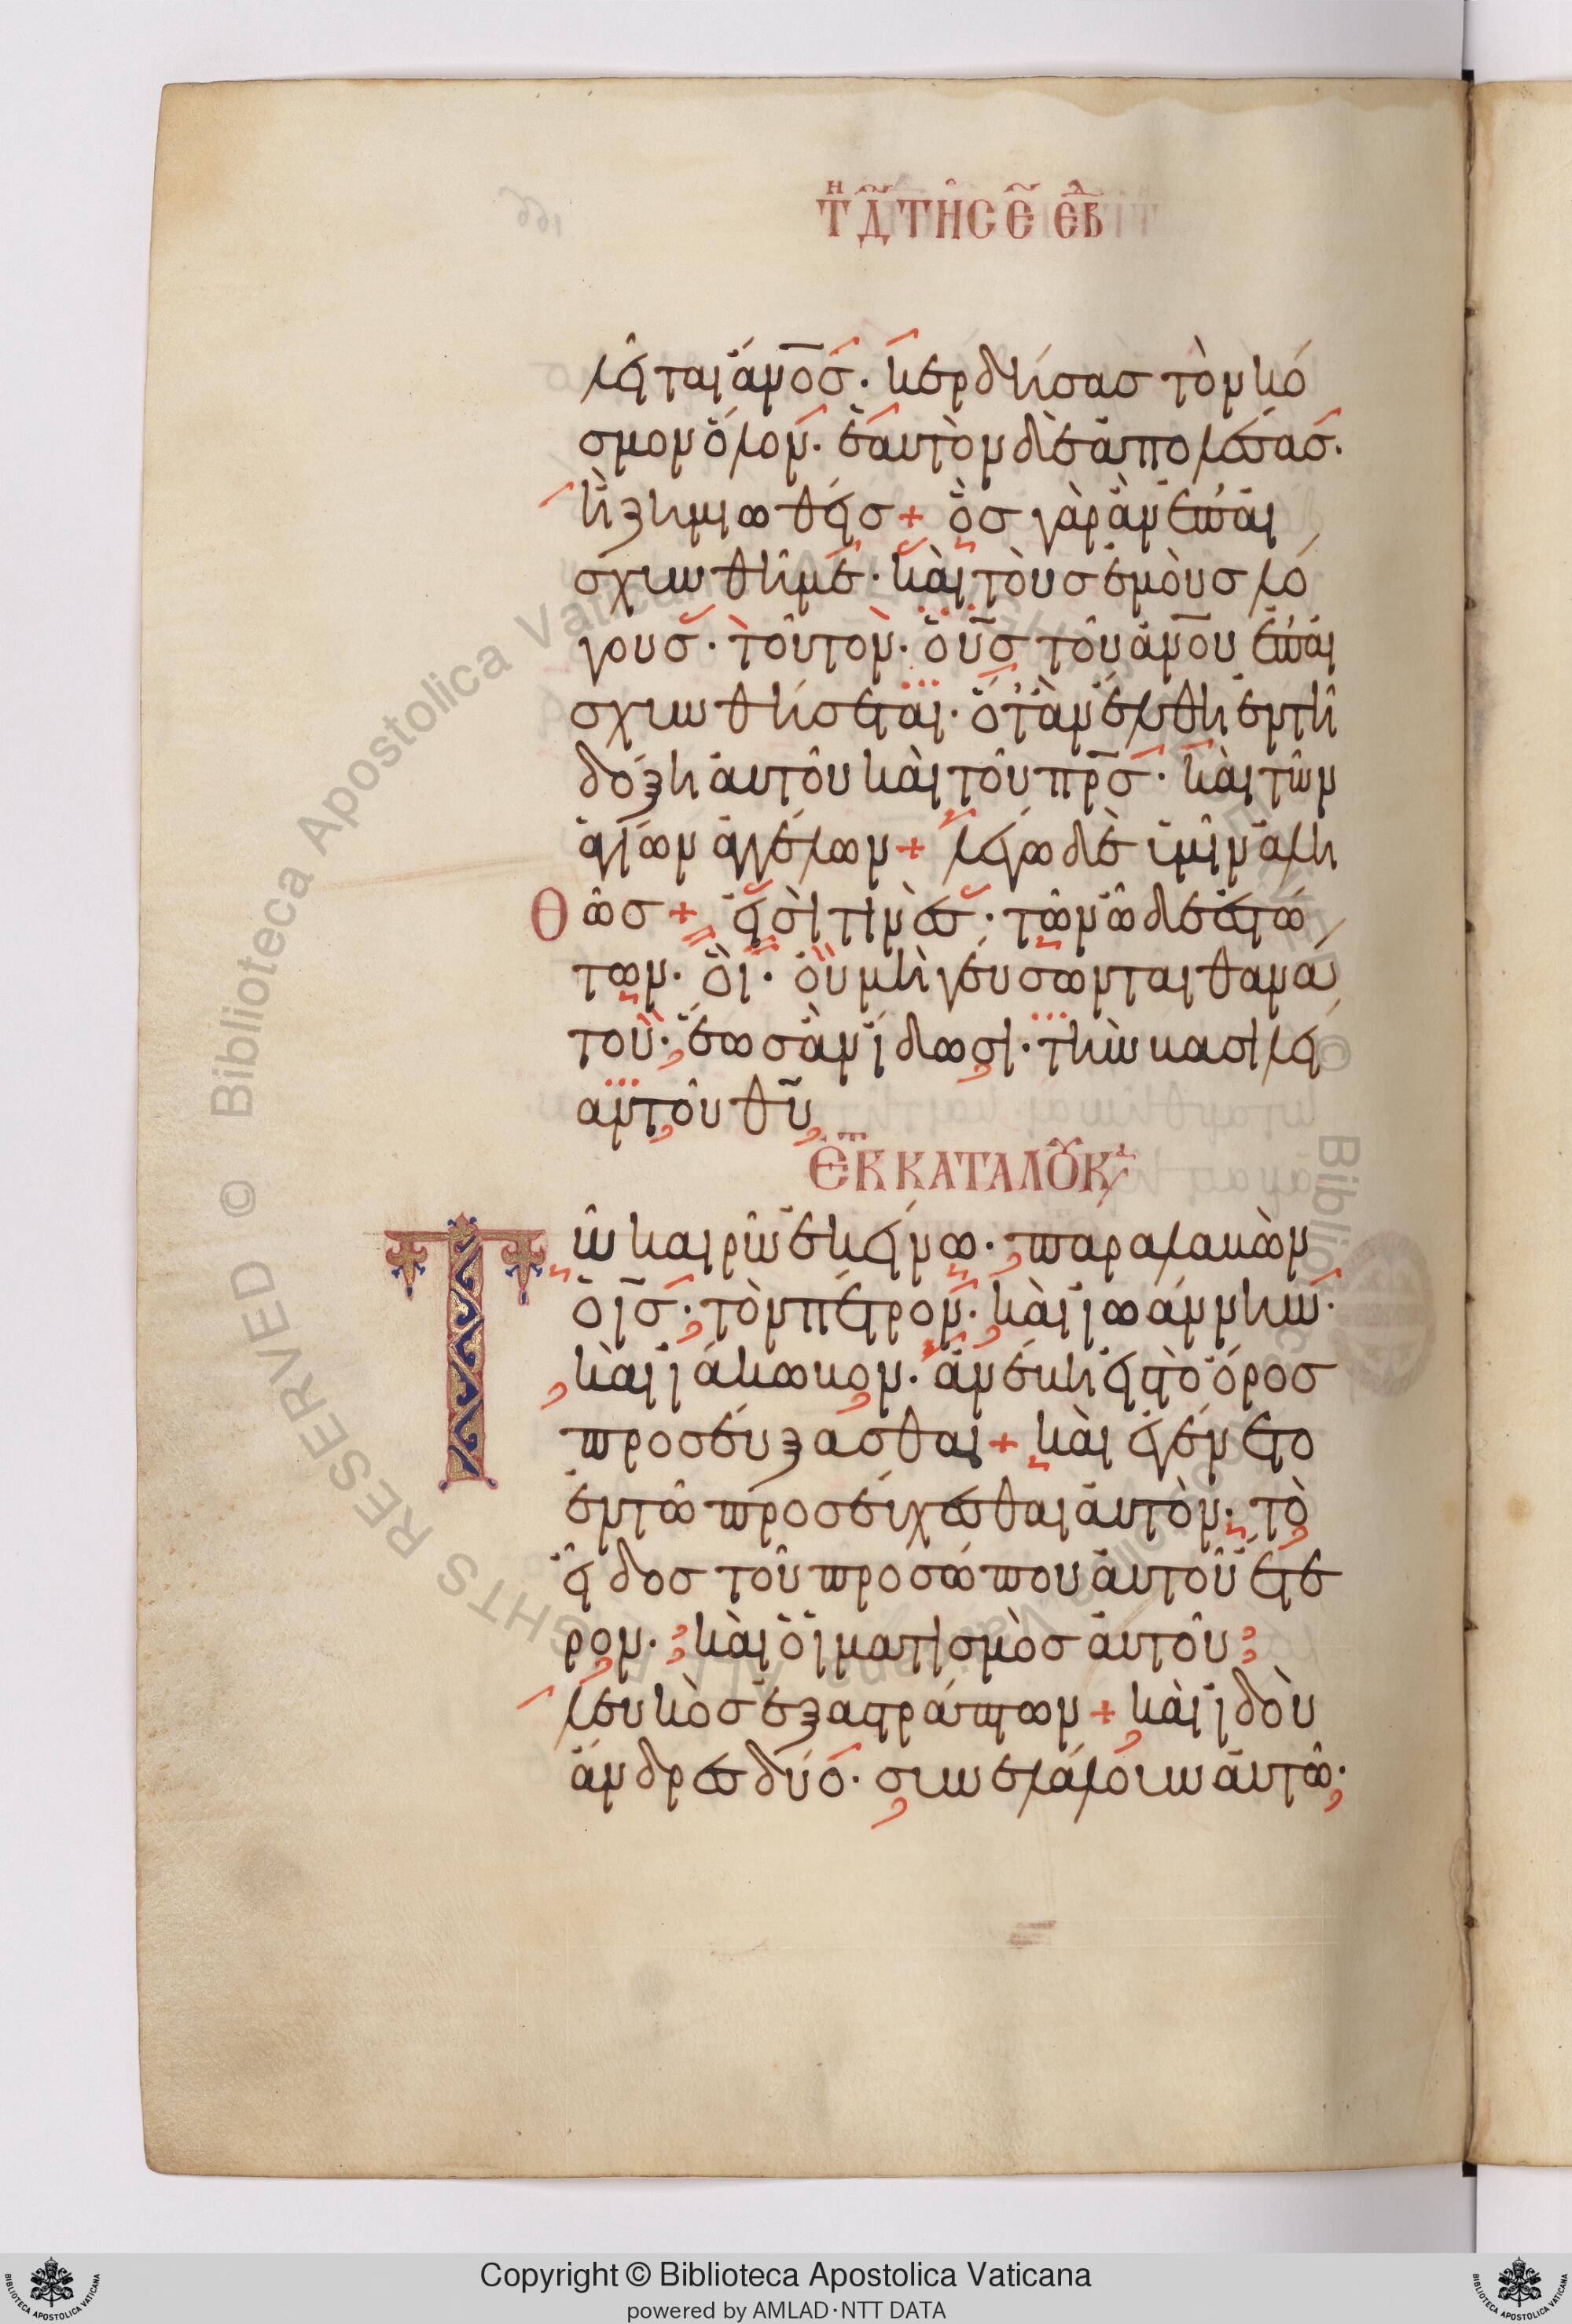 Τῌ Δ̅ ΤΗ͂Ϲ Ε̅ ΕΒΔ
λεῖται ἄν̅οσ· κερδήσασ τὸν κό
σμον ὅλον· ἑαυτὸν δὲ ἀπολέσασ·
ἢ ζημιωθείσ + ὃσ γὰρ ἂν ἐπαι
σχυνθῆ με· καὶ τοὺσ ἐμοὺσ λό
γουσ· τοῦτον· ὁ υ̅σ τοῦ ἀν̅ου ἐπαι
σχυνθήσεται· ὅτ᾽ ἂν ἔλθη ἐν τῆ
δόξη ἀυτοῦ καὶ τοῦ πρ̅σ· καὶ τῶν
ἁγίων ἀγγέλων + λέγω δὲ ὑμῖν ἀλη
θῶσ + εἰσὶ τινὲσ· τῶν ὧδε ἑστώ
των· ὃι· ὀυ μὴ γέυσωνται θανά
του· ἕωσ ἂν ἴδωσι· τὴν βασιλεί
αν τοῦ θ̅υ
ἘΚ ΚΑΤΑ ΛΟΥΚ
Τῶ καιρῶ ἐκείνω· παραλαβὼν
ὁ ι̅σ· τὸν πέτρον· καὶ ἰωάννην·
καὶ ἰάκωβον· ἀνέβη εἰσ τὸ ὄροσ
προσέυξασθαι + καὶ ἐγένετο
ἐν τῶ προσέυχεσθαι ἀυτὸν· τὸ
εἶδοσ τοῦ προσώπου ἀυτοῦ ἕτε
ρον· καὶ ὁ ἱματισμὸσ ἀυτοῦ
λευκὸσ ἐξαστράπτων + καὶ ἰδοὺ
ἄνδρεσ δύο· συνελάλουν ἀυτῶ·
Copyright © Biblioteca Apostolica Vaticana
powered by AMLAD·NTT DATA